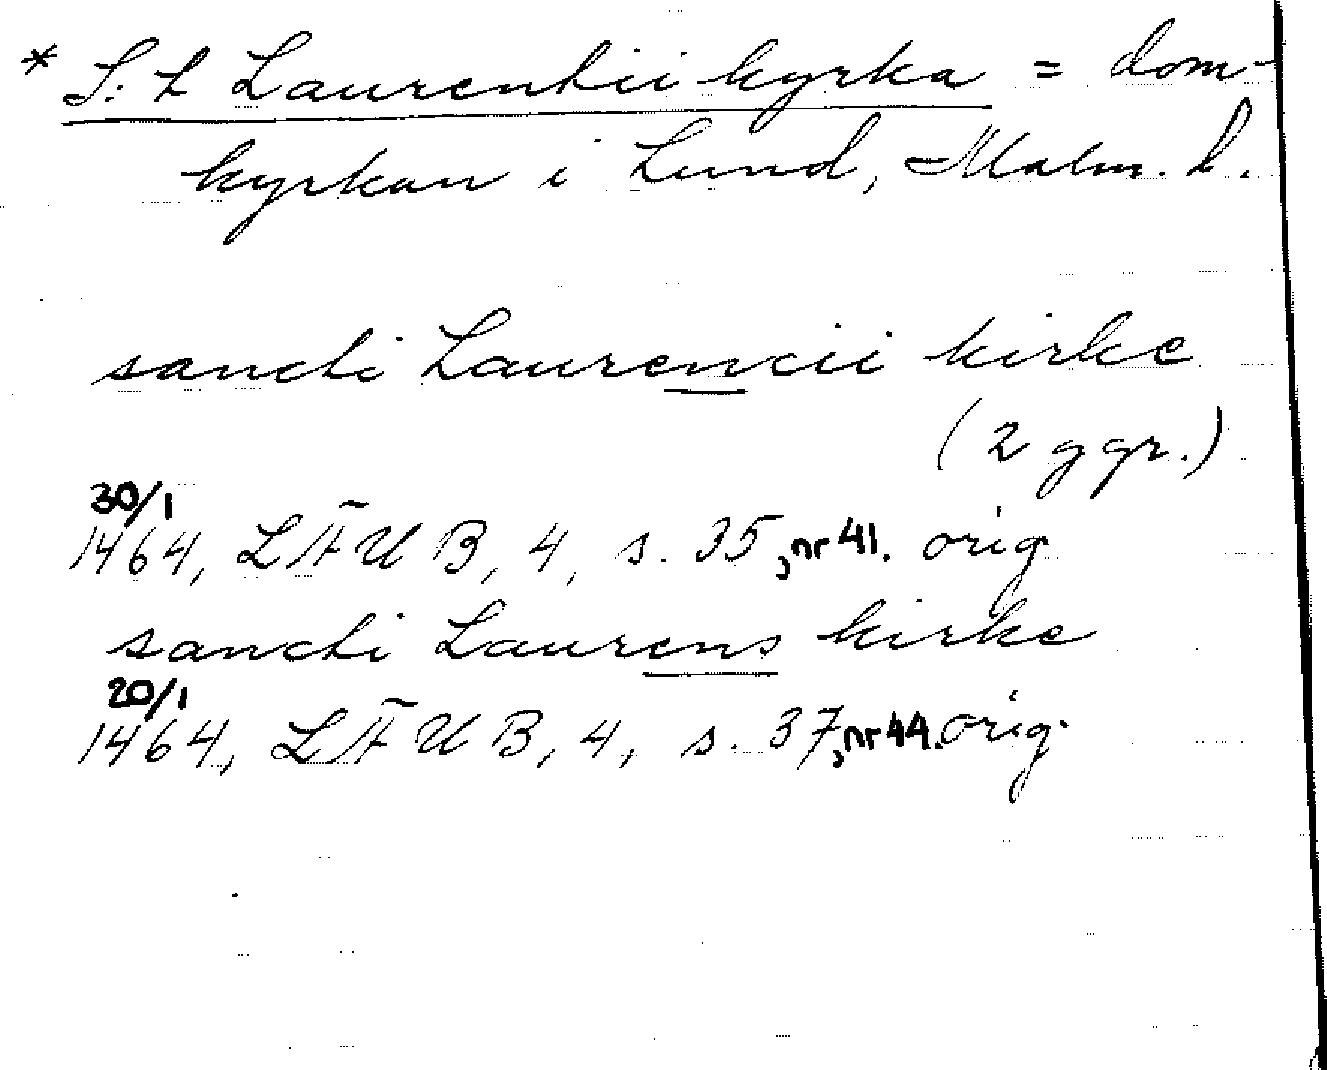 * S:t Laurentii kyrka = dom-
kyrkan i Lund, Malm. l.
sancti Laurencii kirke
(2 ggr.)
30/1
1464, LÄUB, 4, s. 35, nr 41. orig.
sancti Laurens kirke
20/1
1464, LÄUB, 4, s. 37, nr 44. orig.